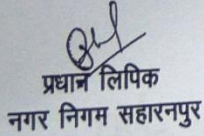 प्रधान लिपिक
नगर निगम सहारनपुर